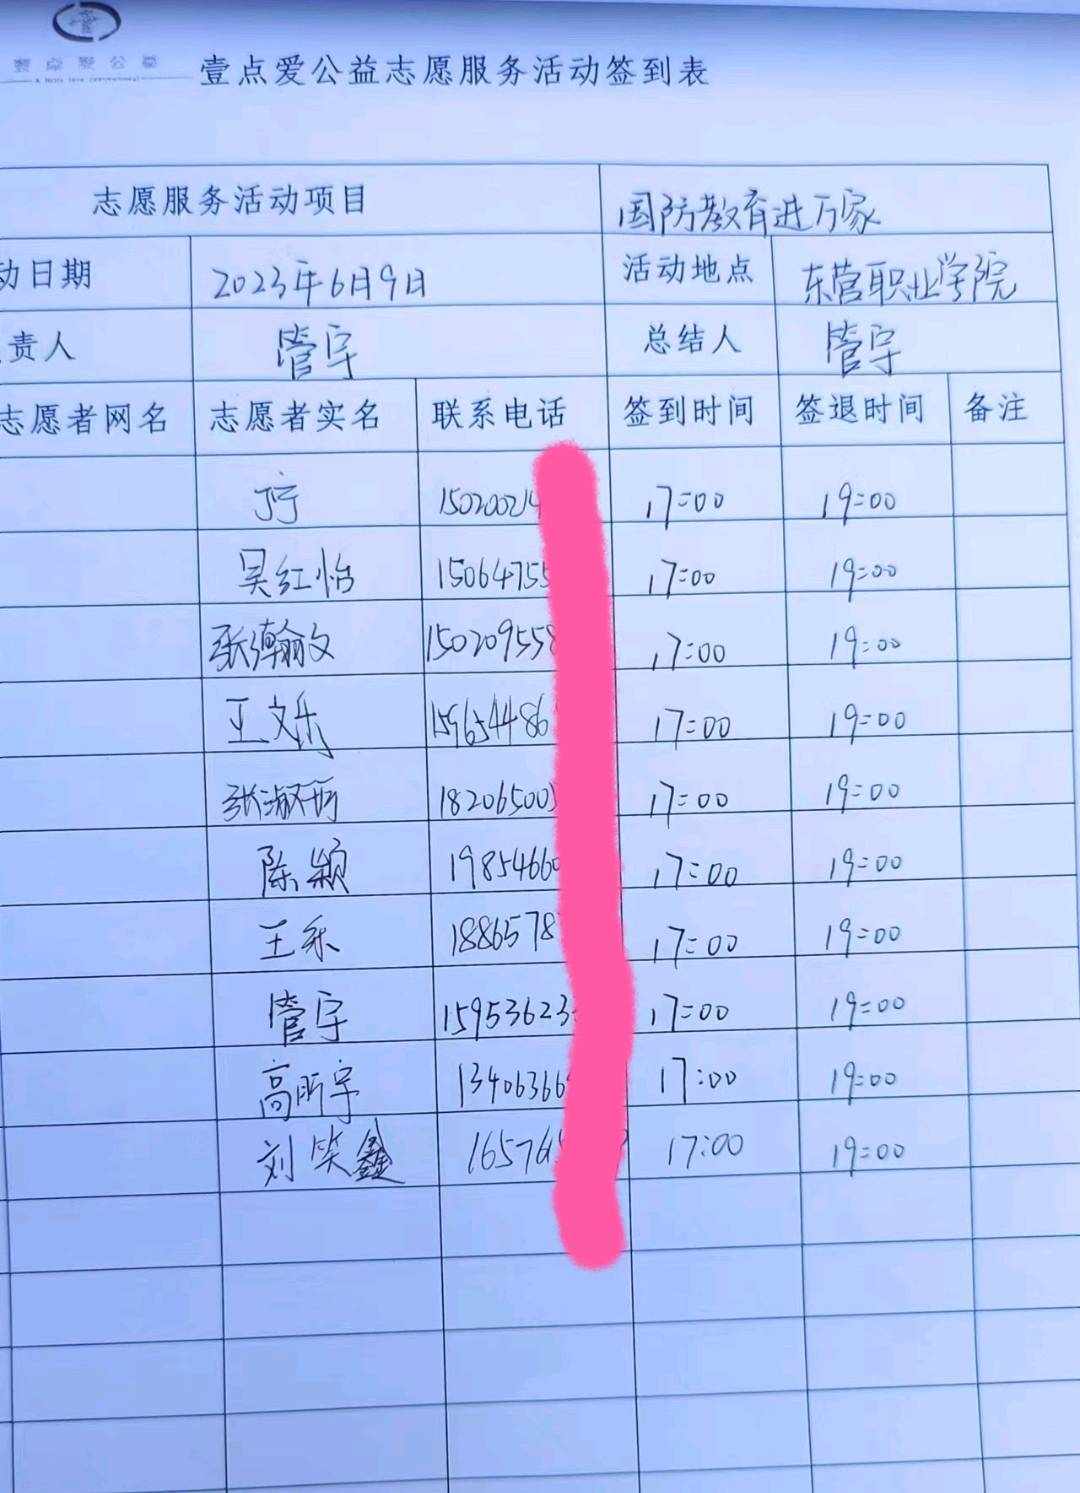 壹点爱公益
壹点爱公益志愿服务活动签到表
志愿服务活动项目 国防教育进万家
动日期 2023年6月9日 活动地点 东营职业学院
责人 管宇 总结人 管宇
志愿者网名 志愿者实名 联系电话 签到时间 签退时间 备注
15020021 17:00 19:00
吴红怡 15064755 17:00 19:00
张瀚文 150209558 17:00 19:00
王文乐 159654486 17:00 19:00
张淑珂 182065005 17:00 19:00
陈颖 19854660 17:00 19:00
王乐 1886578 17:00 19:00
管宇 159536233 17:00 19:00
高昕宇 13406366 17:00 19:00
刘笑鑫 16576 17:00 19:00